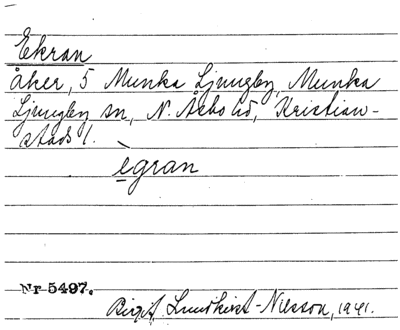 Ekran
åker, 5 Munka Ljungby, Munka
Ljungby sn, N. Åsbo hd, Kristian-
stads l.
ègran
Nr 5497.
Birgit Lundkvist-Nilsson, 1941.